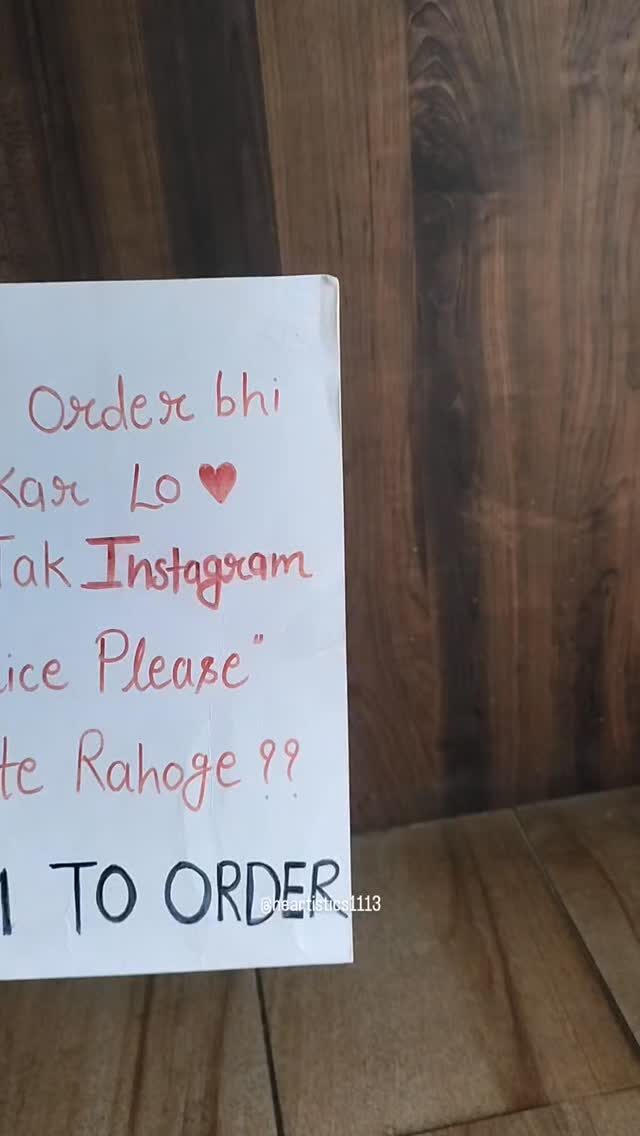 Order bhi
Kar Lo ♥
Tak Instagram
ice Please"
te Rahoge ??
TO ORDER
@heartistics1113